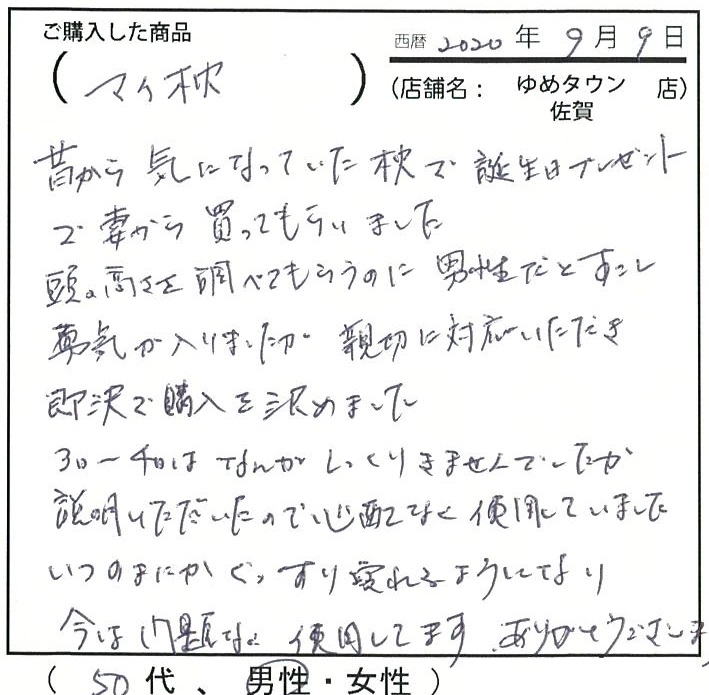 ご購入した商品
(マイ枕)
西暦 2020 年 9 月 9 日
(店舗名: ゆめタウン佐賀 店)
昔から 気になっていた 枕で 誕生日プレゼント
で 妻から 買ってもらいました
頭の高さを 調べてもらうのに 男性だと すこし
勇気が入りましたが 親切に対応いただき
即決で購入を決めました
3日〜4日は なんか しっくりきませんでしたが
説明いただいたので心配なく 使用していました
いつのまにか ぐっすり寝れるようになり
今は問題なく 使用してます ありがとうございま
( 50 代 、 男性 ・ 女性 )